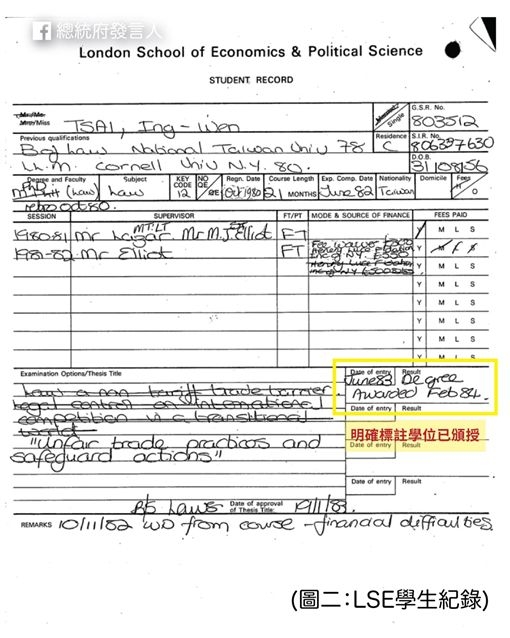 總統府發言人
London School of Economics & Political Science
STUDENT RECORD
Mr/Mrs
Mrs/Miss TSAI, Ing-Wen Married Single G.S.R. No. 803512
Previous qualifications Residence C S.I.R. No. 806397630
B of Law National Taiwan Univ 78
LL.M. Cornell Univ N.Y. 80. D.O.B. 31 08 56
Degree and Faculty Subject KEY CODE NO QE Regn. Date Course Length Exp. Comp. Date Nationality Domicile Fees
PhD
M Phil (Law) Law 12 Oct 1980 21 MONTHS June 82 Taiwan O
retro oct 80.
SESSION SUPERVISOR FT/PT MODE & SOURCE OF FINANCE FEES PAID
1980-81 Mr Lazar MT.LT Mr M.J. Elliot FT Y M L S
1981-82 Mr Elliot FT Fee Waiver Y M L S
Y M L S
Y M L S
Y M L S
Y M L S
Examination Options/Thesis Title Date of entry Result
June 83 Degree
Awarded Feb 84.
Law a non tariff trade barrier
legal control on international
competition in a transitional
Date of entry Result
明確標註學位已頒授
"Unfair trade practices and
safeguard actions"
Date of entry Result
Date of entry Result
B/S Laws Date of approval of Thesis Title: 19/1/83.
REMARKS 10/11/82 WD from course - financial difficulties
(圖二:LSE學生紀錄)